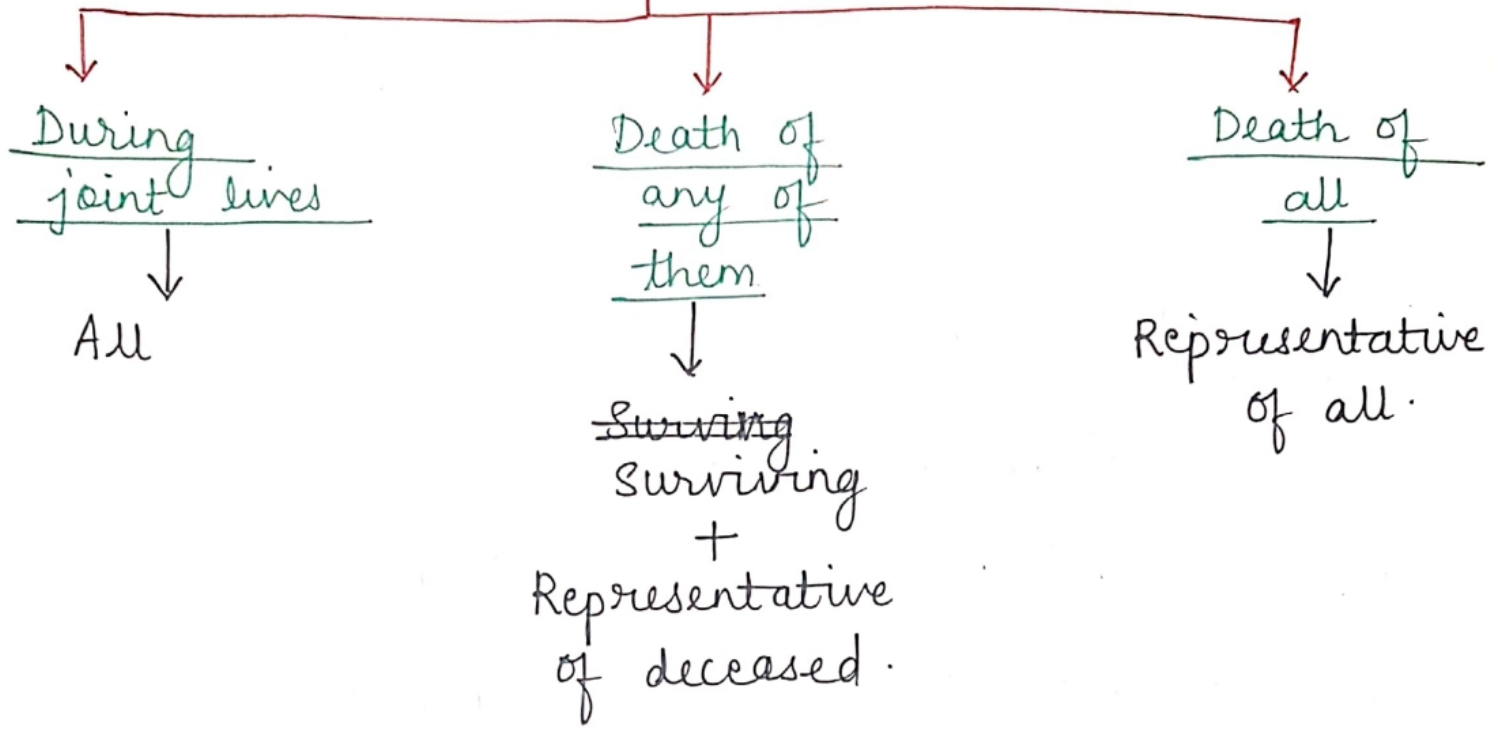 During
joint lives
All
Death of
any of
them
Surving
Surviving
+
Representative
of deceased.
Death of
all
Representative
of all.